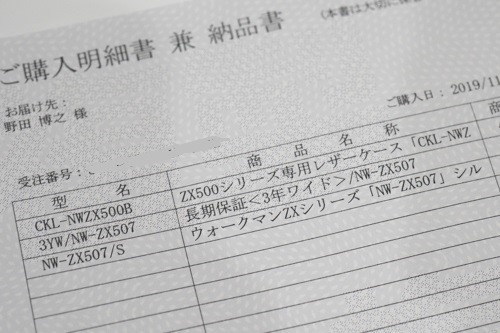 ご購入明細書 兼 納品書
(本書は大切に保
お届け先:
野田 博之 様
ご購入日: 2019/11
受注番号:
型 名
商 品 名 称
商
CKL-NWZX500B
ZX500シリーズ専用レザーケース「CKL-NWZ
3YW/NW-ZX507
長期保証<3年ワイド>/NW-ZX507
NW-ZX507/S
ウォークマンZXシリーズ「NW-ZX507」シル